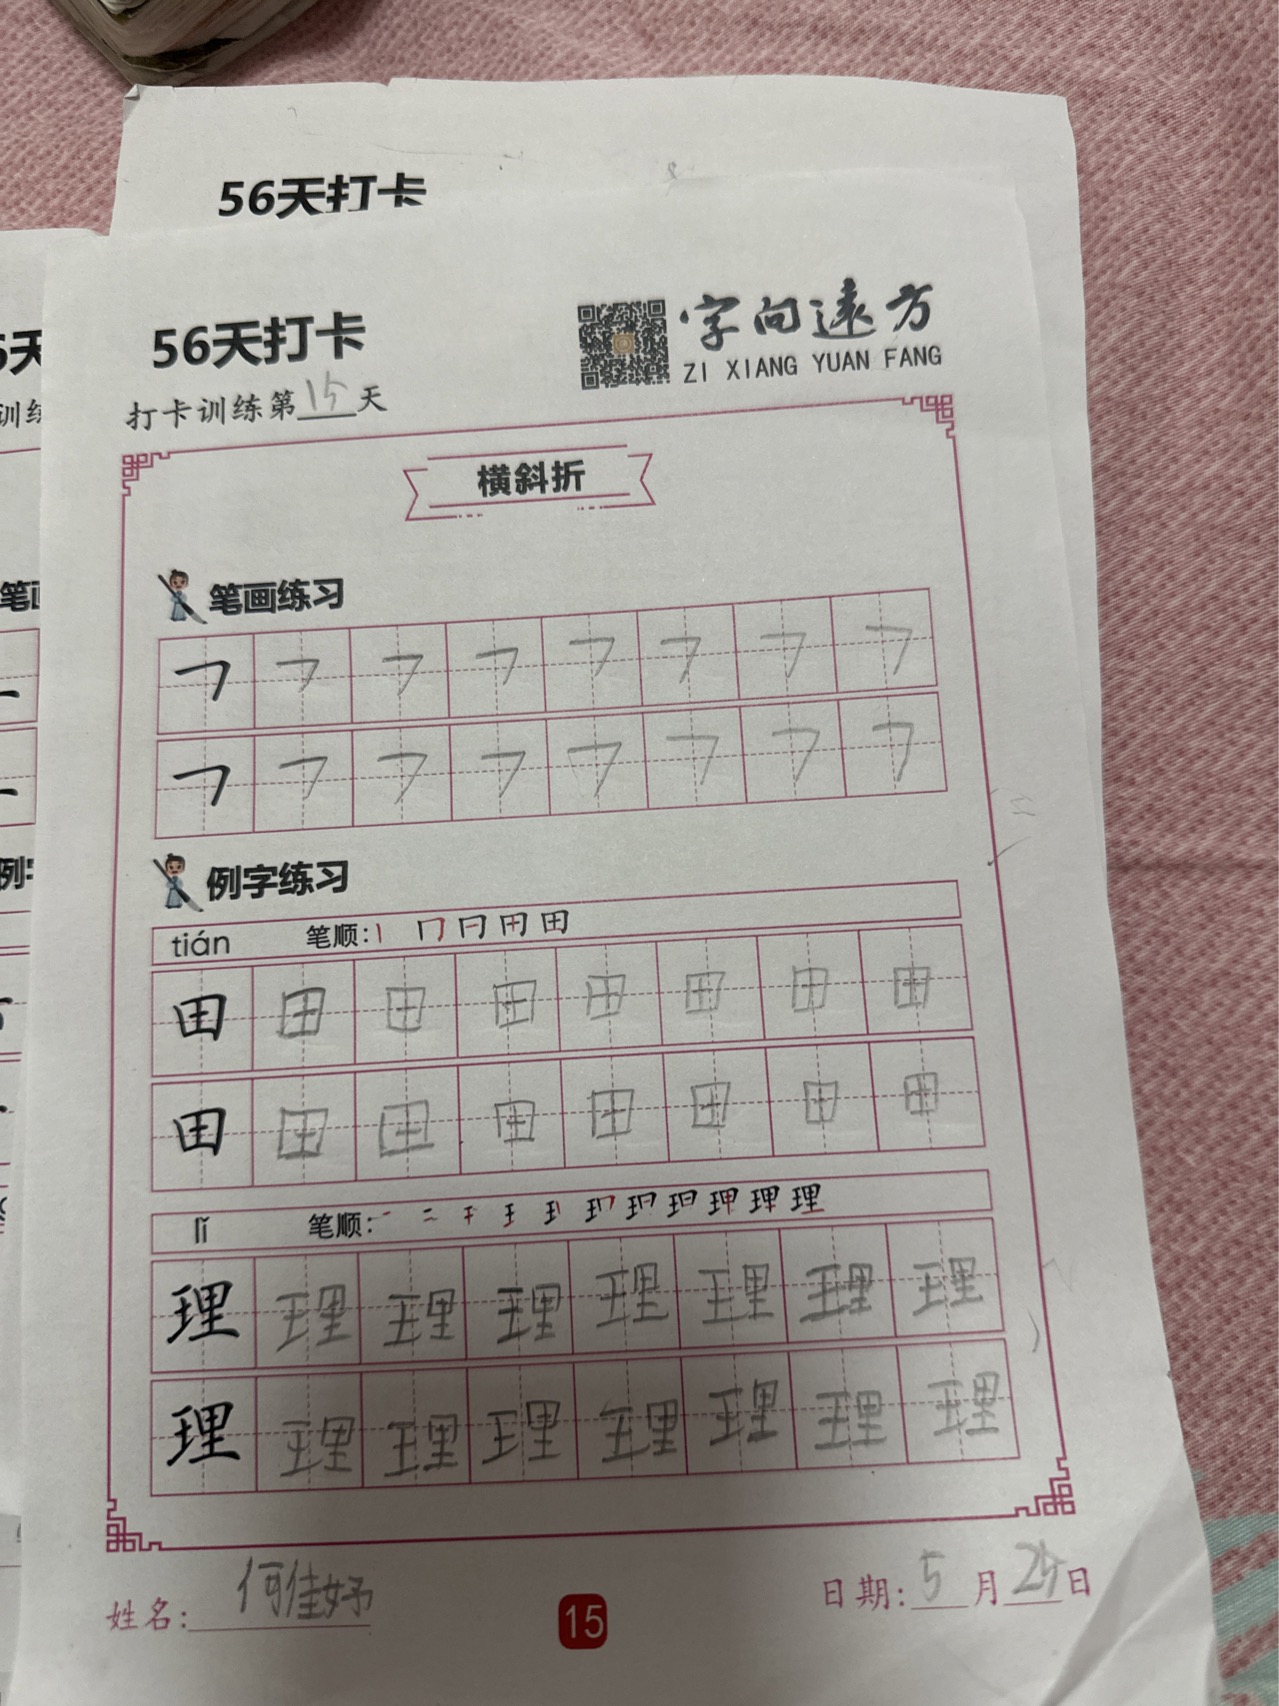 56天打卡
56天打卡
打卡训练第15天
字向远方
ZI XIANG YUAN FANG
横斜折
笔画练习
例字练习
tián 笔顺:
田 田 田 田 田 田 田 田
田 田 田 田 田 田 田 田
lǐ 笔顺:
理 理 理 理 理 理 理 理
理 理 理 理 理 理 理 理
姓名:何佳妤
15
日期:5月25日